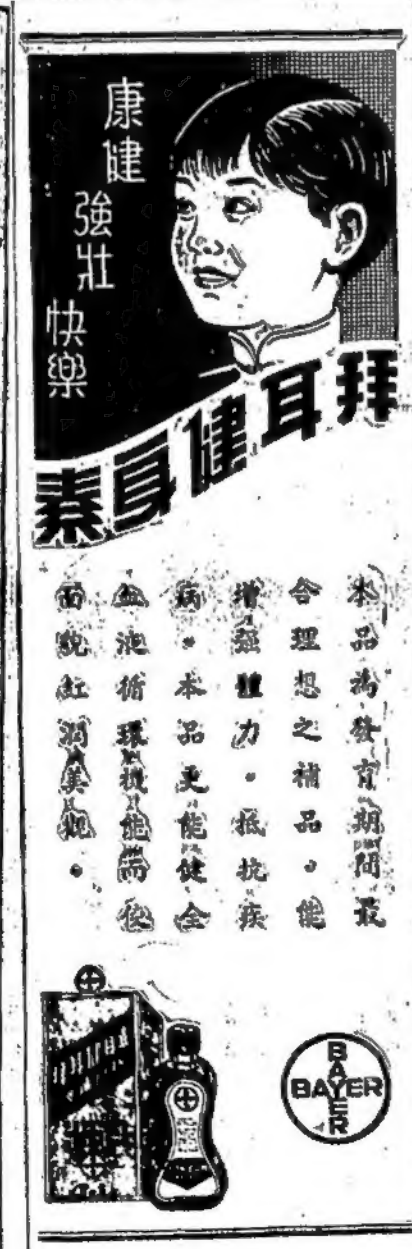 康健
強壯
快樂
拜耳健身素
本品為發育期間最
合理想之補品。能
增強體力。抵抗疾
病。本品更能健全
血液循環機能而使
面貌紅潤美觀。
BAYER
BAYER